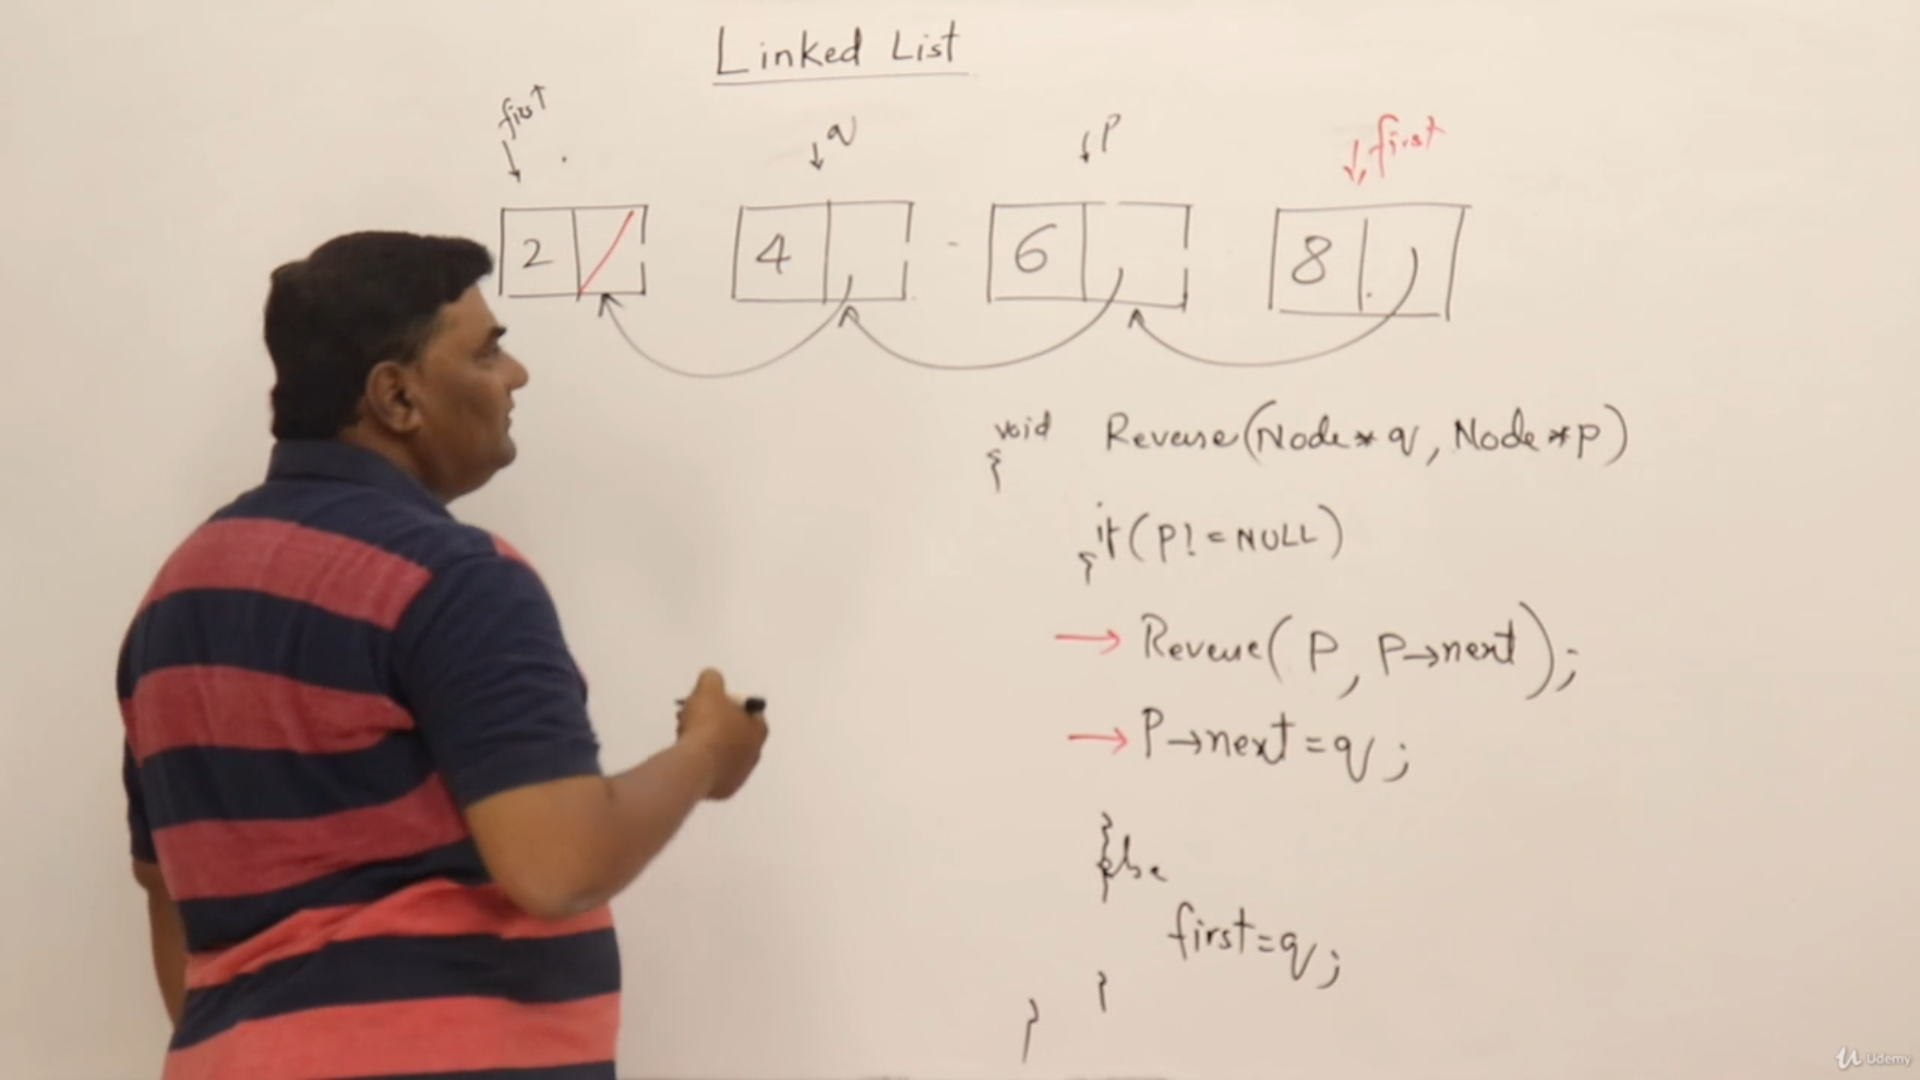 Linked List
first
q
p
first
2
4
6
8
void Reverse(Node* q, Node *p)
{
if(p!=NULL)
{
→ Reverse( P, P→next);
→ P→next=q;
}else
first=q;
}
}
Udemy